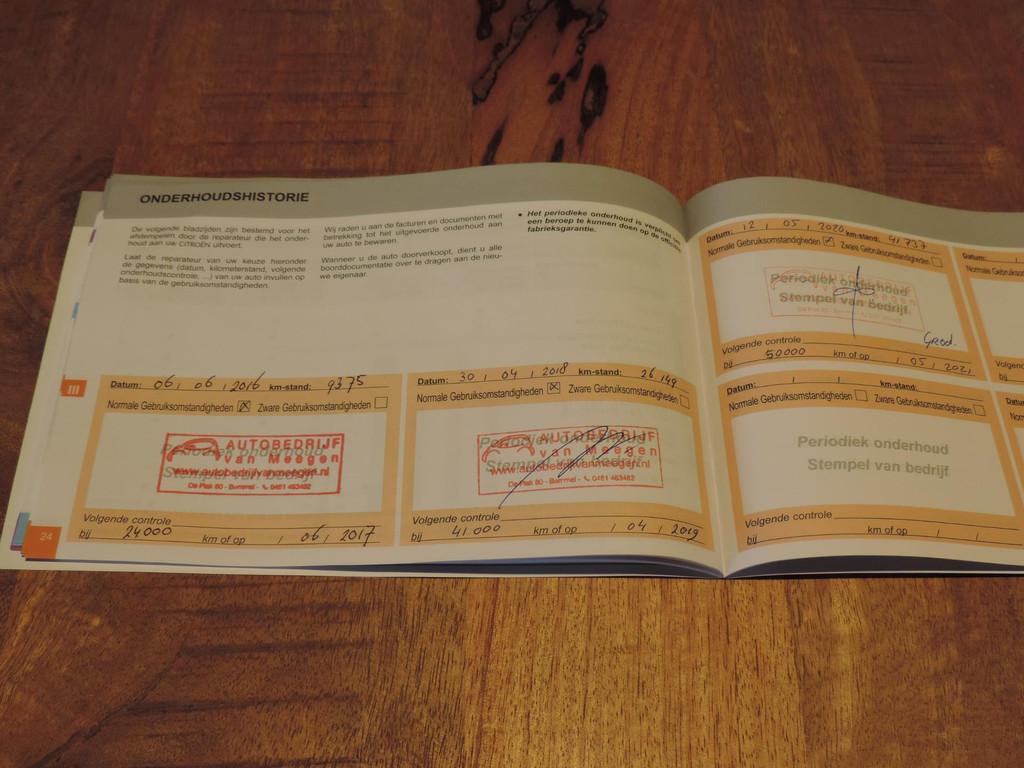 ONDERHOUDSHISTORIE
De volgende bladzijden zijn bestemd voor het
afstempelen door de reparateur die het onder-
houd aan uw CITROËN uitvoert.
Laat de reparateur van uw keuze hieronder
de gegevens (datum, kilometerstand, volgende
onderhoudscontrole, ...) van uw auto invullen op
basis van de gebruiksomstandigheden.
Wij raden u aan de facturen en documenten met
betrekking tot het uitgevoerde onderhoud aan
uw auto te bewaren.
Wanneer u de auto doorverkoopt, dient u alle
boorddocumentatie over te dragen aan de nieu-
we eigenaar.
• Het periodieke onderhoud is verplicht om
een beroep te kunnen doen op de
fabrieksgarantie.
Datum: 06 / 06 / 2016 km-stand: 9375
Normale Gebruiksomstandigheden ☒ Zware Gebruiksomstandigheden ☐
Periodiek onderhoud
Stempel van bedrijf
AUTOBEDRIJF
van Meegen
www.autobedrijfvanmeegen.nl
De Plak 80 - Bemmel - 0481 463482
Volgende controle
bij 24000 km of op / 06 / 2017
24
III
Datum: 30 / 04 / 2018 km-stand: 26 149
Normale Gebruiksomstandigheden ☒ Zware Gebruiksomstandigheden ☐
Periodiek onderhoud
Stempel van bedrijf
AUTOBEDRIJF
van Meegen
www.autobedrijfvanmeegen.nl
De Plak 80 - Bemmel - 0481 463482
Volgende controle
bij 41 000 km of op / 04 / 2019
Datum: 12 / 05 / 2020 km-stand: 41 737
Normale Gebruiksomstandigheden ☒ Zware Gebruiksomstandigheden ☐
Periodiek onderhoud
Stempel van bedrijf
AUTOBEDRIJF
van Meegen
Volgende controle
bij 59000 km of op / 05 / 2021
Datum: / / km-stand:
Normale Gebruiksomstandigheden ☐ Zware Gebruiksomstandigheden ☐
Periodiek onderhoud
Stempel van bedrijf
Volgende controle
bij km of op / /
Datum:
Normale
Volgende
bij
Datum:
Normale
Volgende
bij